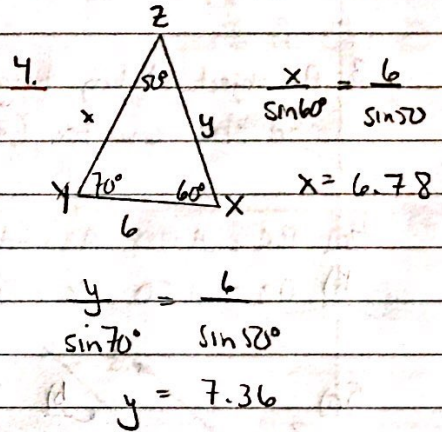 Z
4. 50° x/sin60° = 6/sin50
x y
Y 70° 60° X x = 6.78
6
y/sin70° = 6/sin50°
y = 7.36